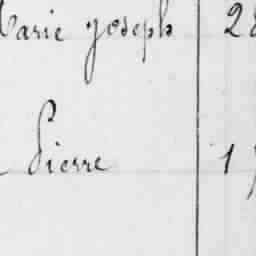 Marie Joseph 2
Pierre 1